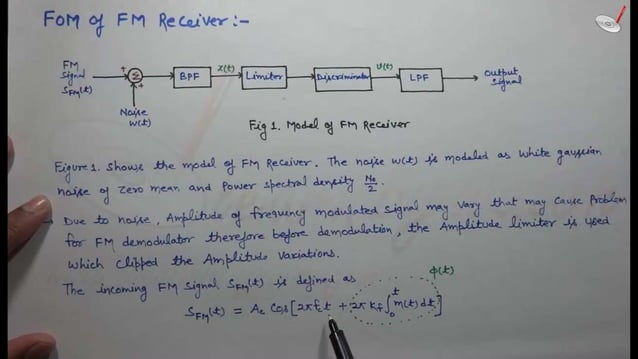 FOM of FM Receiver:-
FM Signal SFM(t)
+
Σ
+
Noise W(t)
BPF
x(t)
Limiter
Discriminator
v(t)
LPF
Output Signal
Fig 1. Model of FM Receiver
Figure 1. Shows the model of FM Receiver. The noise w(t) is modeled as white gaussian
noise of zero mean and Power spectral density N₀/2.
Due to noise, Amplitude of frequency modulated signal may vary that may cause problem
for FM demodulator therefore before demodulation, the Amplitude limiter is used
which clipped the Amplitude variations.
The incoming FM Signal SFM(t) is defined as
ϕ(t)
SFM(t) = Ac Cos[2πfct + 2πKf∫₀ᵗ m(t)dt]